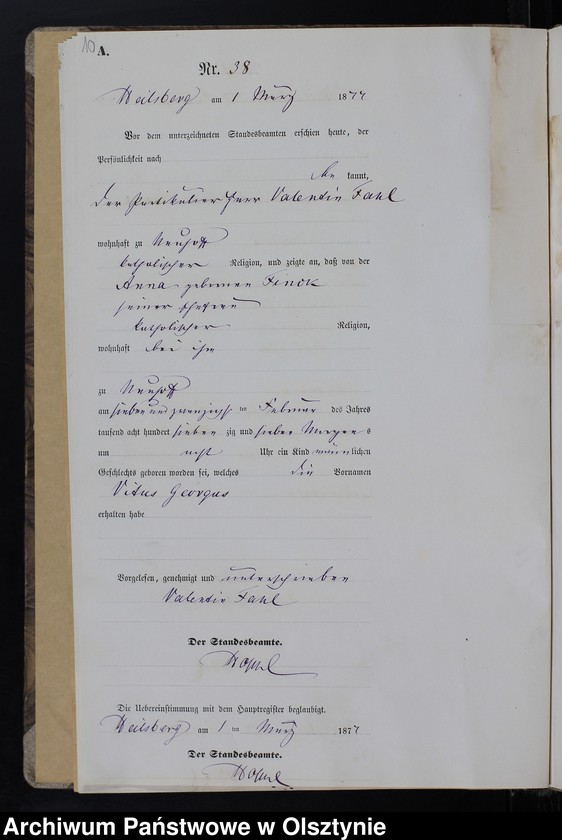 10
A.
Nr. 38
Heilsberg am 1 März 1877
Vor dem unterzeichneten Standesbeamten erschien heute, der
Persönlichkeit nach
be kannt,
der Partikulier Herr Valentin Fahl
wohnhaft zu Neuhoff
katholischer Religion, und zeigte an, daß von der
Anna geborenen
seiner Ehefrau
katholischer Religion,
wohnhaft bei ihm
zu Neuhoff
am sieben und zwanzigsten Februar des Jahres
tausend acht hundert sieben zig und sieben Morgens
um acht Uhr ein Kind männlichen
Geschlechts geboren worden sei, welches die Vornamen
Vitus Georgus
erhalten habe
Vorgelesen, genehmigt und unterschrieben
Valentin Fahl
Der Standesbeamte.
Die Uebereinstimmung mit dem Hauptregister beglaubigt.
Heilsberg am 1 ten März 1877
Der Standesbeamte.
Archiwum Państwowe w Olsztynie